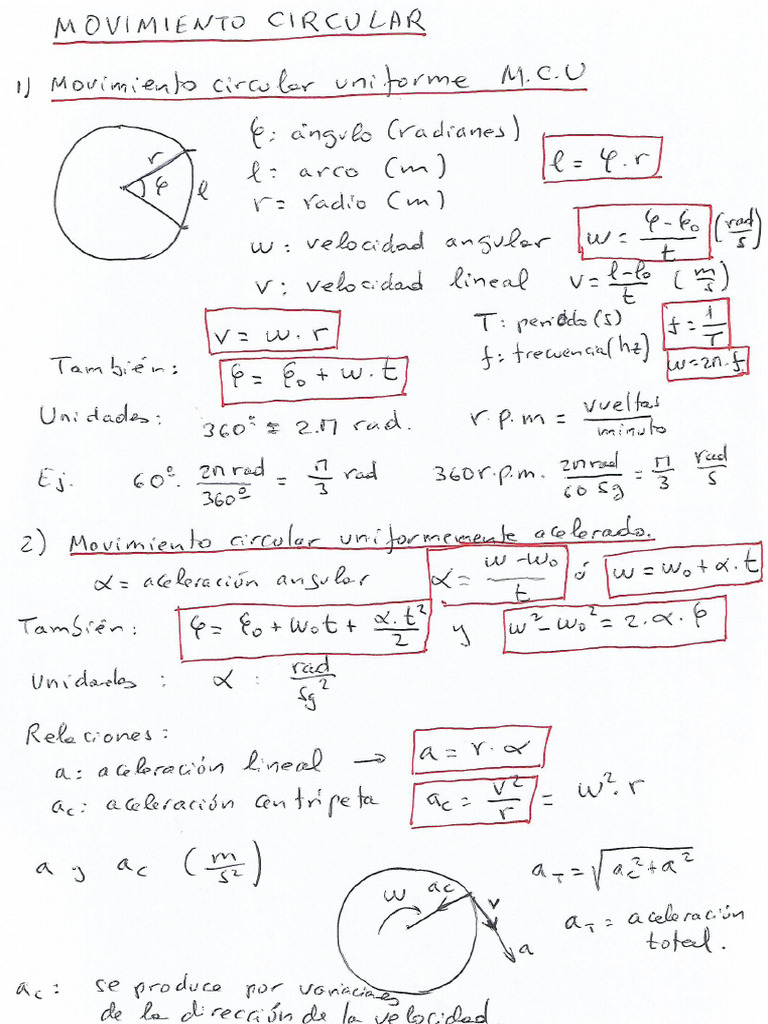 MOVIMIENTO CIRCULAR
1) Movimiento circular uniforme M.C.U
r φ l
φ: ángulo (radianes)
l: arco (m) l = φ.r
r = radio (m)
w: velocidad angular w = (φ-φ₀)/t (rad/s)
v: velocidad lineal v = (l-l₀)/t (m/s)
v = w.r T: periodo (s) f = 1/T
f: frecuencia (hz) w=2π.f
También: φ = φ₀ + w.t
Unidades: 360° = 2.π rad. r.p.m = vueltas/minuto
Ej. 60°. 2π rad/360° = π/3 rad 360 r.p.m. 2π rad/60 sg = π/3 rad/s
2) Movimiento circular uniformemente acelerado.
α = aceleración angular α = (w-w₀)/t ó w = w₀ + α.t
También: φ = φ₀ + w₀t + α.t²/2 y w²-w₀² = 2.α.φ
Unidades: α: rad/sg²
Relaciones:
a: aceleración lineal → a = r.α
ac: aceleración centrípeta ac = v²/r = w².r
a y ac (m/s²)
w ac v a
aT = √(ac²+a²)
aT = aceleración
total.
ac: se produce por variaciones
de la dirección de la velocidad.